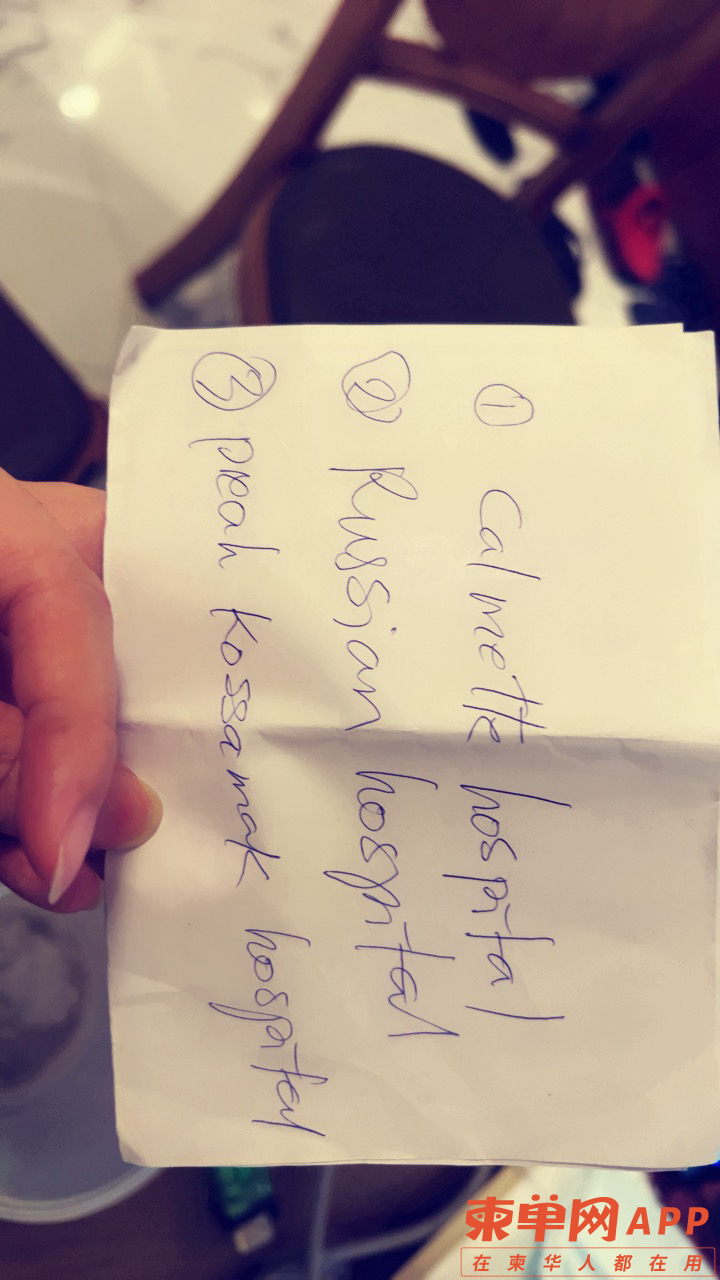 ① Calmette hospital
② Russian hospital
③ preah kossamak hospital
柬单网APP
在柬华人都在用